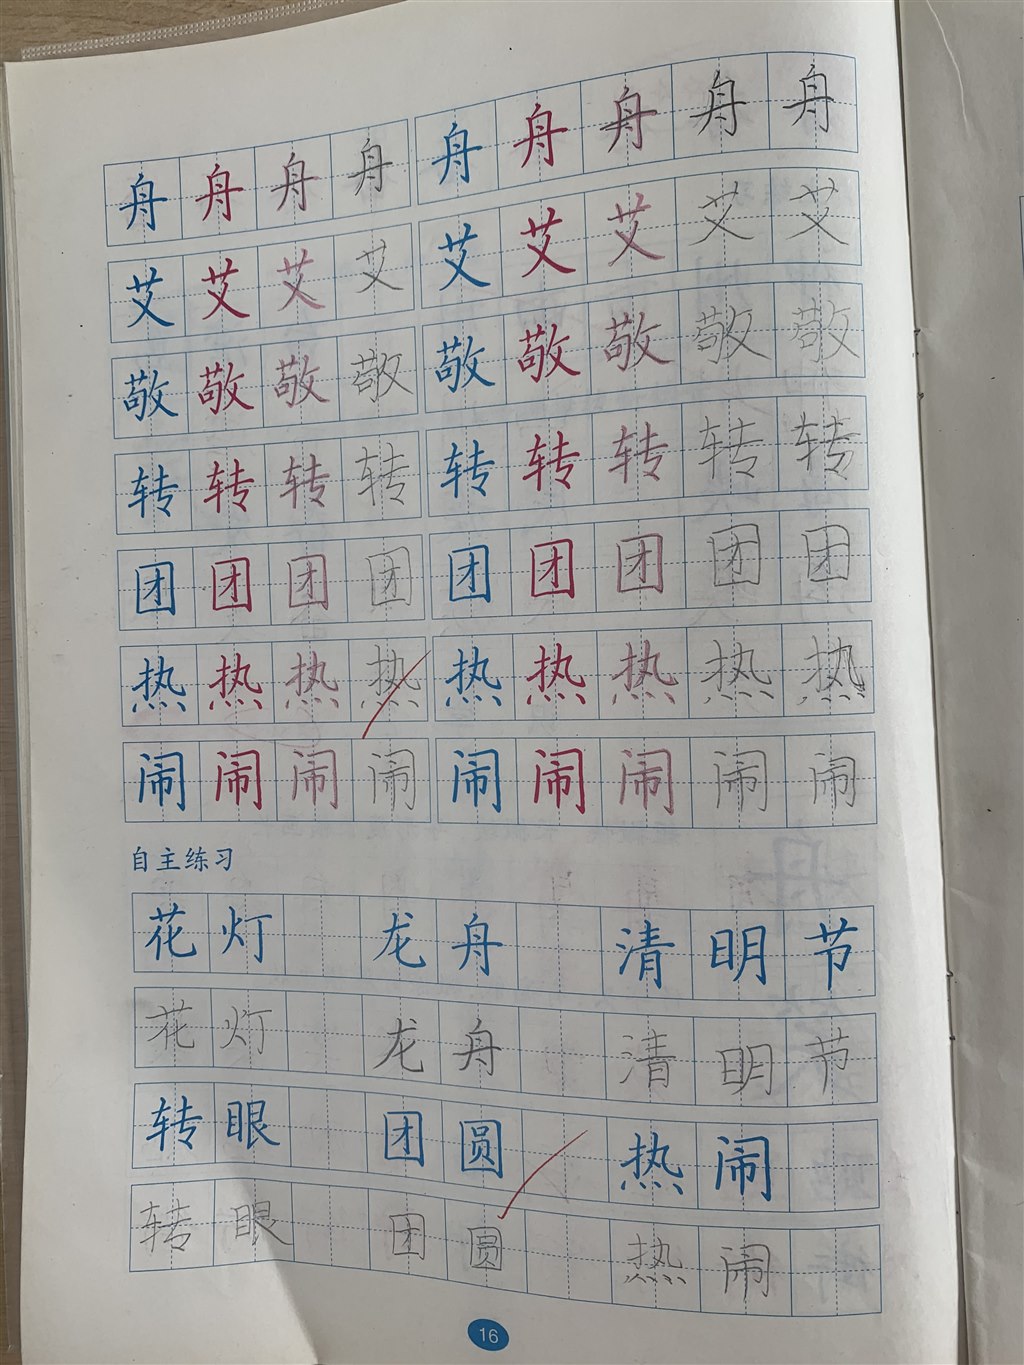 舟舟舟舟舟舟舟舟舟
艾艾艾艾艾艾艾艾艾
敬敬敬敬敬敬敬敬敬
转转转转转转转转转
团团团团团团团团团
热热热热热热热热热
闹闹闹闹闹闹闹闹闹
自主练习
花灯 龙舟 清明节
花灯 龙舟 清明节
转眼 团圆 热闹
转眼 团圆 热闹
16